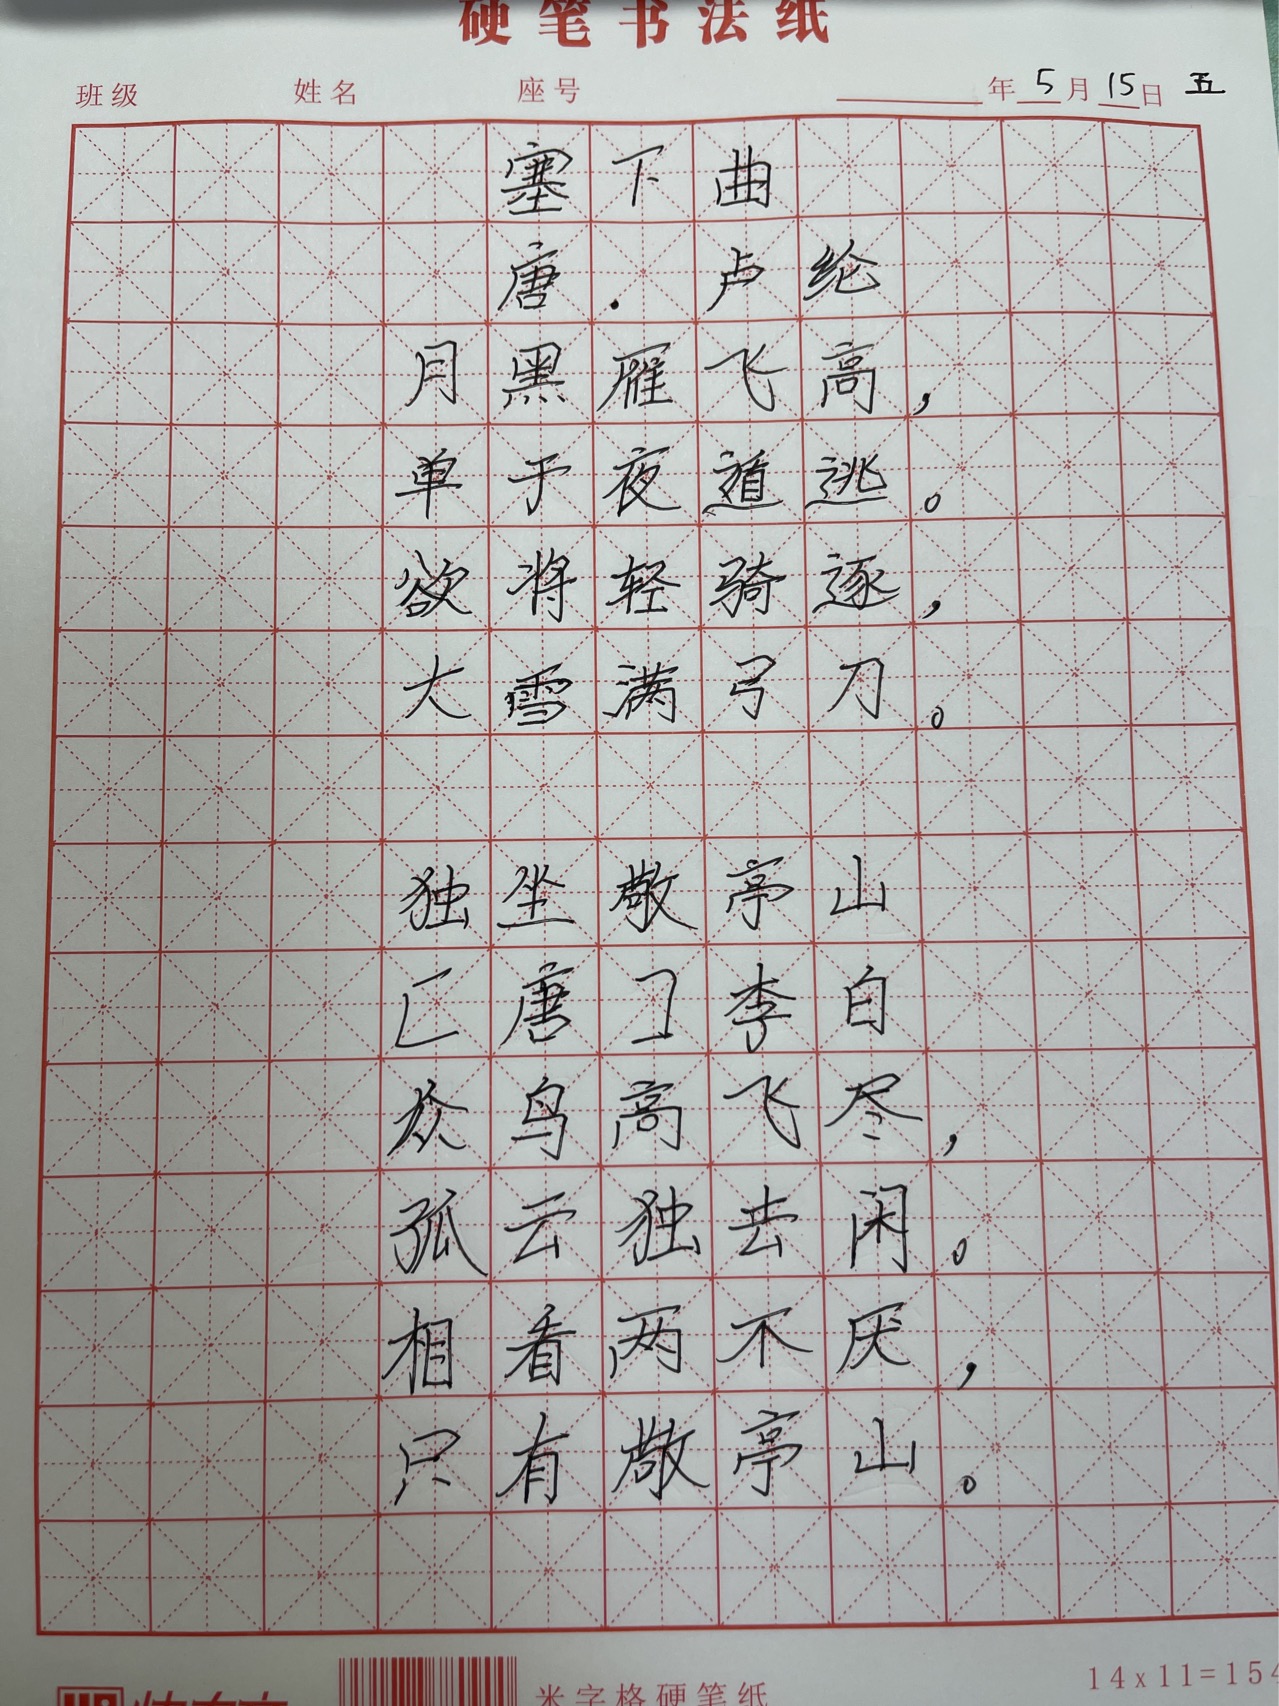 硬笔书法纸
班级 姓名 座号 年5月15日 五
塞下曲
唐.卢纶
月黑雁飞高，
单于夜遁逃。
欲将轻骑逐，
大雪满弓刀。
独坐敬亭山
[唐]李白
众鸟高飞尽，
孤云独去闲。
相看两不厌，
只有敬亭山。
14x11=154
米字格硬笔纸